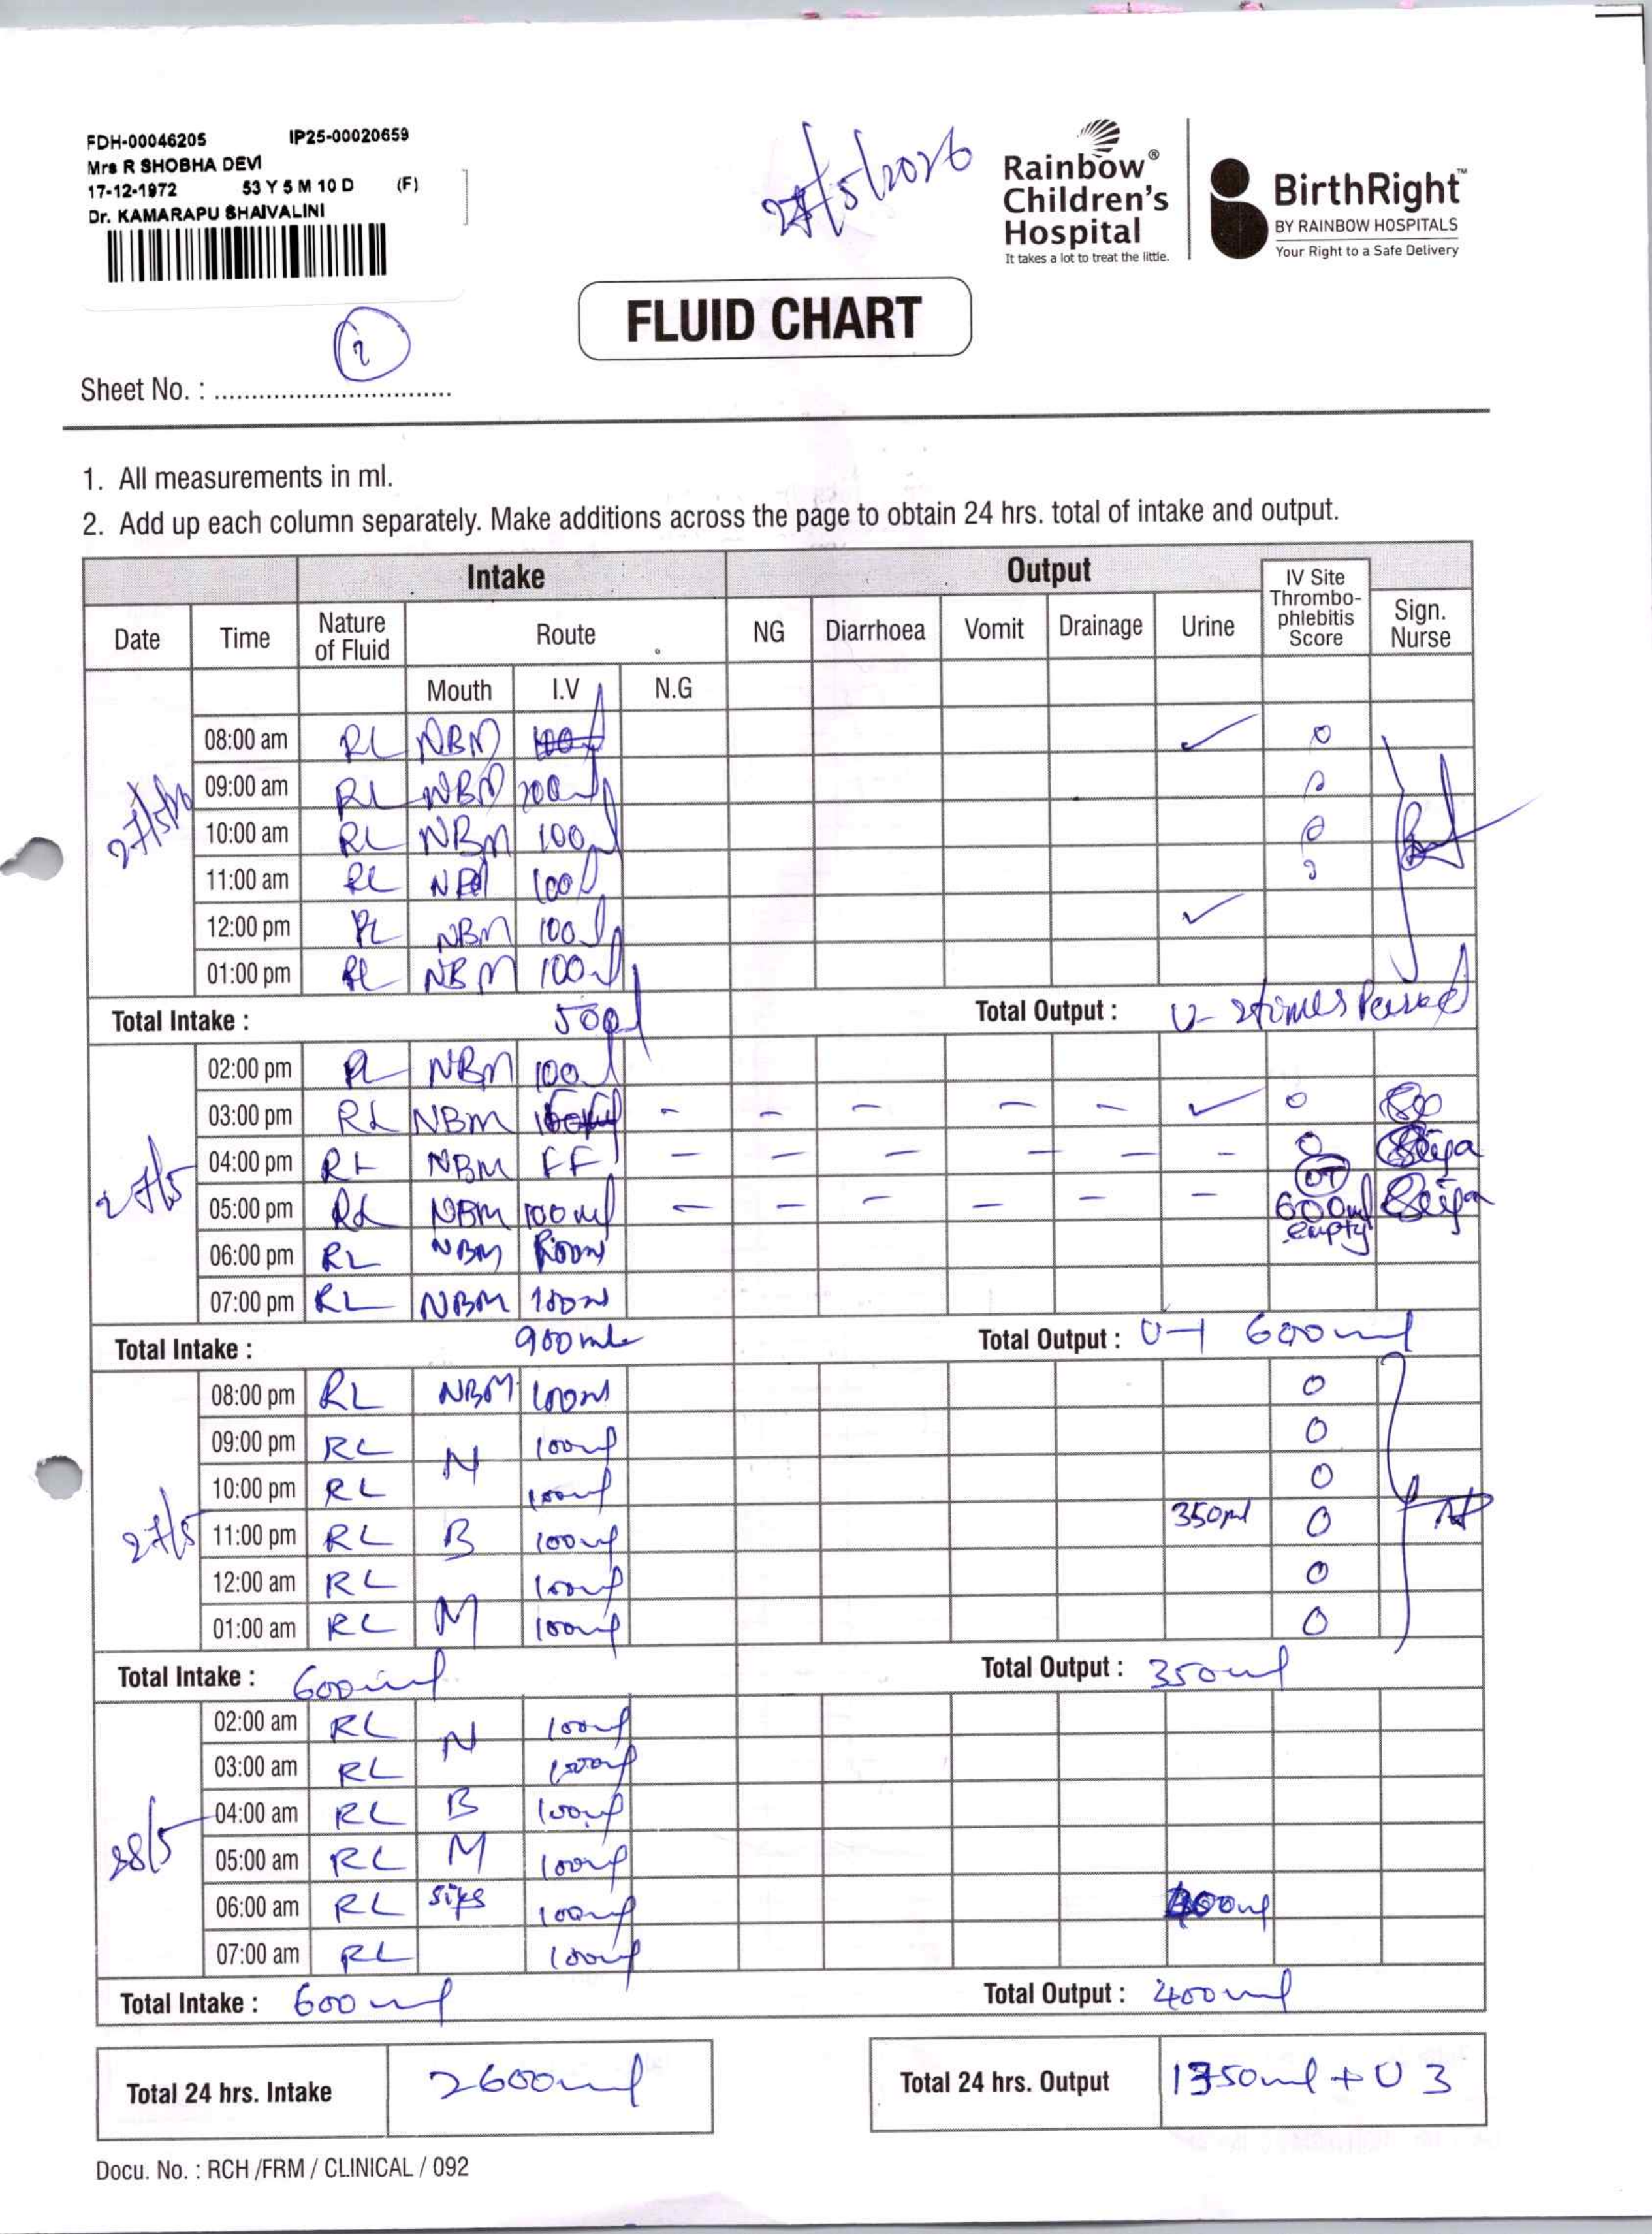 FDH-00046205 IP25-00020659
Mrs R SHOBHA DEVI
17-12-1972 53 Y 5 M 10 D (F)
Dr. KAMARAPU SHAIVALINI
27/5/2026
Rainbow® Children's Hospital
It takes a lot to treat the little.
BirthRight™
BY RAINBOW HOSPITALS
Your Right to a Safe Delivery
FLUID CHART
Sheet No. : ................................
1. All measurements in ml.
2. Add up each column separately. Make additions across the page to obtain 24 hrs. total of intake and output.
Intake Output
Date Time Nature of Fluid Route NG Diarrhoea Vomit Drainage Urine IV Site Thrombo-phlebitis Score Sign. Nurse
Mouth I.V N.G
08:00 am RL NBM ✓ 0
27/5/26
09:00 am RL NBM 0
10:00 am RL NBM 100ml 0
11:00 am RL NBM 100ml
12:00 pm RL NBM 100ml ✓
01:00 pm RL NBM 100ml
Total Intake : 500ml Total Output : U- 2times Passed
02:00 pm RL NBM 100ml
03:00 pm RL NBM - - - - - ✓ 0
27/5
04:00 pm RL NBM FF - - - - - - 0
OT
05:00 pm RL NBM 100ml - - - - - - 600ml empty
06:00 pm RL NBM
07:00 pm RL NBM 100ml
Total Intake : 900ml Total Output : U-1 600ml
08:00 pm RL NBM 100ml 0
09:00 pm RL N 100ml 0
10:00 pm RL 100ml 0
27/5
11:00 pm RL B 100ml 350ml 0
12:00 am RL 100ml 0
01:00 am RL M 100ml 0
Total Intake : 600ml Total Output : 350ml
02:00 am RL N 100ml
03:00 am RL 100ml
04:00 am RL B 100ml
28/5
05:00 am RL M 100ml
06:00 am RL sips 100ml 400ml
07:00 am RL 100ml
Total Intake : 600ml Total Output : 400ml
Total 24 hrs. Intake 2600ml Total 24 hrs. Output 1350ml + U 3
Docu. No. : RCH /FRM / CLINICAL / 092